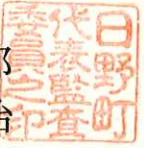 日野町
代表監査
委員之印